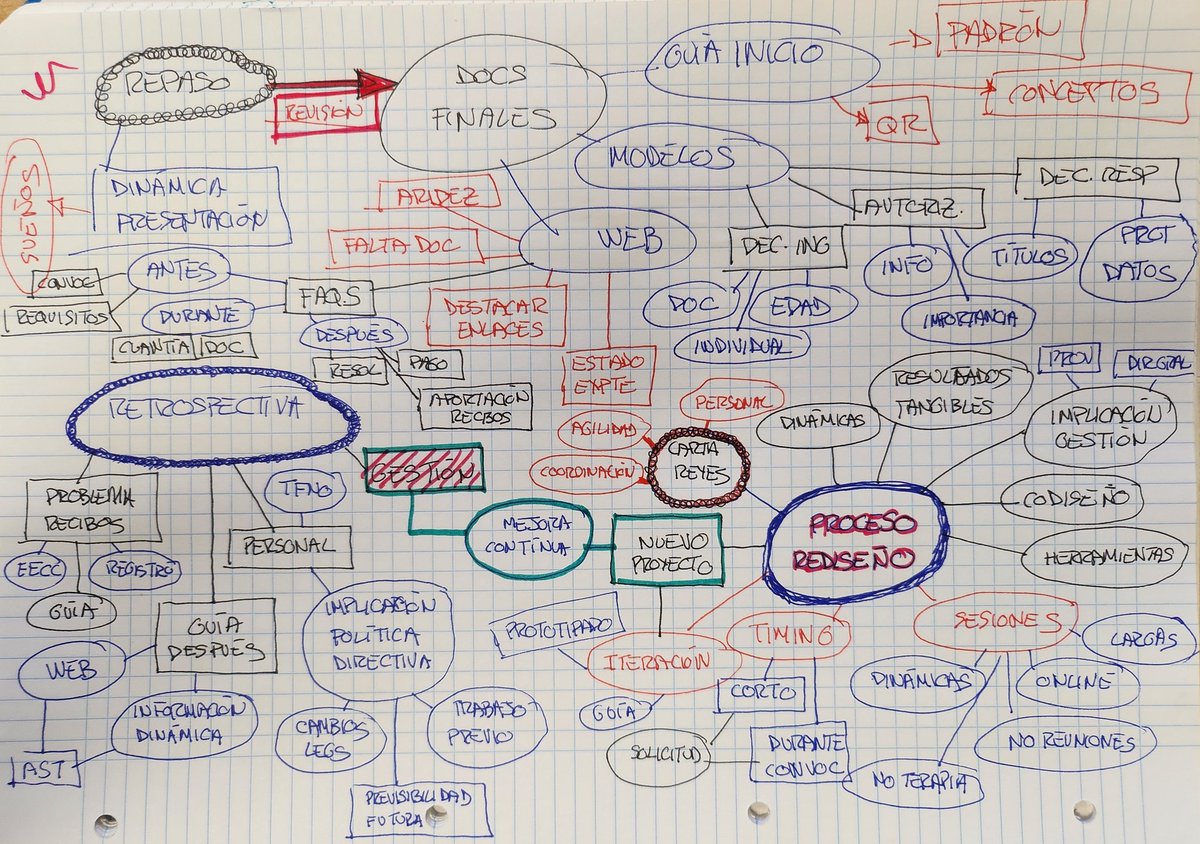 REPASO
REVISIÓN
DOCS
FINALES
GUÍA INICIO
PADRÓN
CONCEPTOS
QR
MODELOS
DINÁMICA
PRESENTACIÓN
SUEÑOS
ARIDEZ
FALTA DOC
WEB
DESTACAR
ENLACES
ESTADO
EXPTE
DEC. ING
DOC
EDAD
INDIVIDUAL
AUTORIZ.
INFO
IMPORTANCIA
DEC. RESP
TÍTULOS
PROT
DATOS
FAQ.S
ANTES
CONVOC
REQUISITOS
DURANTE
CUANTÍA
DOC
DESPUÉS
RESOL
PAGO
APORTACIÓN
RECIBOS
RETROSPECTIVA
GESTIÓN
MEJORA
CONTÍNUA
NUEVO
PROYECTO
PROCESO
REDISEÑO
CARTA
REYES
PERSONAL
AGILIDAD
COORDINACIÓN
DINÁMICAS
RESULTADOS
TANGIBLES
PROV
DIR GRAL
IMPLICACIÓN
GESTIÓN
CODISEÑO
HERRAMIENTAS
SESIONES
LARGAS
ONLINE
NO REUNIONES
NO TERAPIA
DINÁMICAS
TIMING
CORTO
DURANTE
CONVOC
SOLICITUD
ITERACIÓN
PROTOTIPADO
GUÍA
PROBLEMA
RECIBOS
EECC
REGISTRO
GUÍA
TFNO
PERSONAL
GUÍA
DESPUÉS
WEB
INFORMACIÓN
DINÁMICA
AST
IMPLICACIÓN
POLÍTICA
DIRECTIVA
CAMBIOS
LEGS
TRABAJO
PREVIO
PREVISIBILIDAD
FUTURA